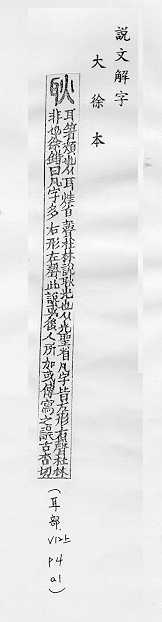 說文解字
大徐本
耿
耳箸頰也从耳烓省聲杜林說耿光也从光聖省凡字皆左形右聲杜林
非也徐鍇曰凡字多右形左聲此說或後人所加或傳寫之誤古杏切
(耳部 V12上 P4 a1)